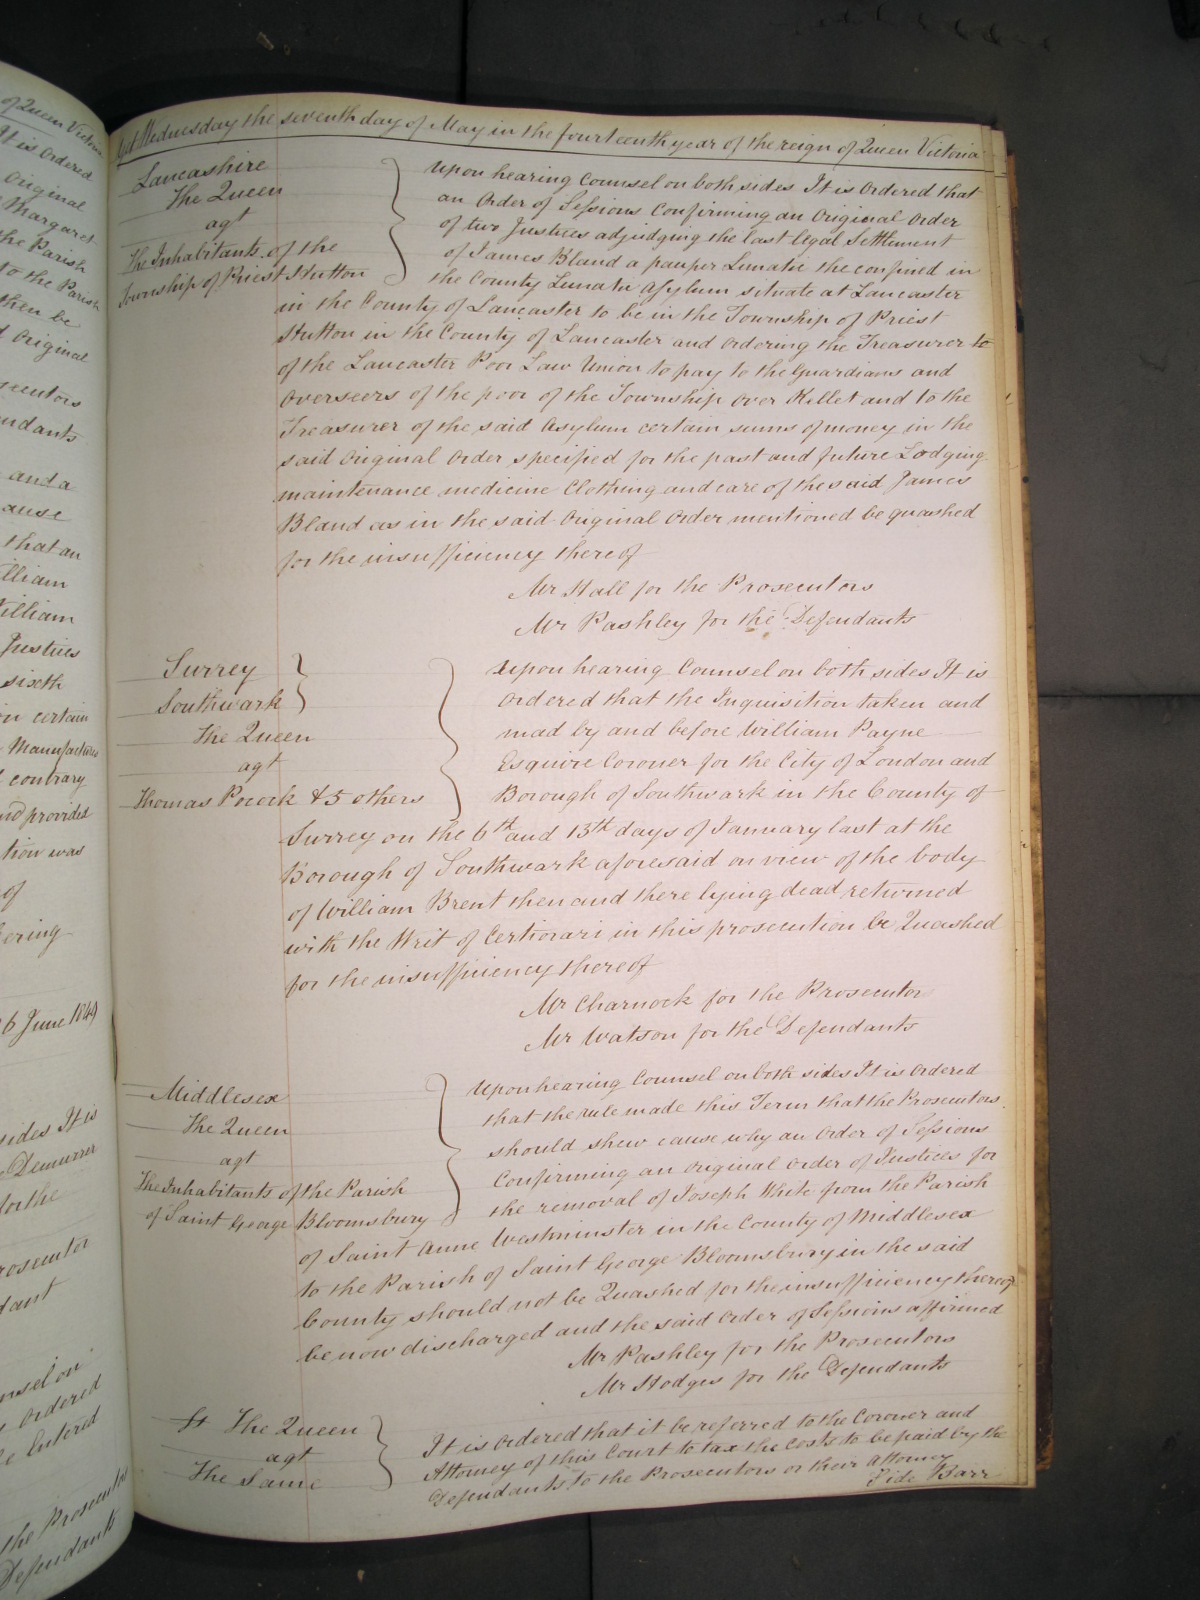 of Queen Victoria
It is Ordered
Original
Margaret
the Parish
to the Parish
then be
Original
and a
that an
William
Justices
sixth
in certain
contrary
and provides
tion was
of
26 June 1849
sides It is
Demurrer
for the
rosecutor
ordered
be Entered
the Prosecutors
Defendants
Yet Wednesday the seventh day of May in the fourteenth year of the reign of Queen Victoria
Lancashire
The Queen
agt
The Inhabitants of the
Township of Priest Hutton
Upon hearing Counsel on both sides It is Ordered that
an Order of Sessions Confirming an Original Order
of two Justices adjudging the last legal Settlement
of James Bland a pauper Lunatic the confined in
the County Lunatic Asylum situate at Lancaster
in the County of Lancaster to be in the Township of Priest
Hutton in the County of Lancaster and ordering the Treasurer to
of the Lancaster Poor Law Union to pay to the Guardians and
Overseers of the poor of the Township Over Kellet and to the
Treasurer of the said Asylum certain sums of money in the
said Original Order specified for the past and future Lodging
maintenance medicine Clothing and care of the said James
Bland as in the said Original Order mentioned be quashed
for the insufficiency thereof
Mr Hall for the Prosecutors
Mr Pashley for the Defendants
Surrey
Southwark
The Queen
agt
Thomas Pocock & 5 others
Upon hearing Counsel on both sides It is
Ordered that the Inquisition taken and
mad by and before William Payne
Esquire Coroner for the City of London and
Borough of Southwark in the County of
Surrey on the 6th and 13th days of January last at the
Borough of Southwark aforesaid on view of the body
of William Brent then and there lying dead returned
with the Writ of Certiorari in this prosecution be Quashed
for the insufficiency thereof
Mr Charnock for the Prosecutor
Mr Watson for the Defendants
Middlesex
The Queen
agt
The Inhabitants of the Parish
of Saint George Bloomsbury
Upon hearing Counsel on both sides It is Ordered
that the rule made this Term that the Prosecutors
should shew cause why an Order of Sessions
Confirming an Original Order of Justices for
the removal of Joseph White from the Parish
of Saint Anne Westminster in the County of Middlesex
to the Parish of Saint George Bloomsbury in the said
County should not be Quashed for the insufficiency thereof
be now discharged and the said Order of Sessions affirmed
Mr Pashley for the Prosecutors
Mr Hodges for the Defendants
The Queen
agt
The Same
It is Ordered that it be referred to the Coroner and
Attorney of this Court to tax the Costs to be paid by the
Defendants to the Prosecutors or their attorney
Side Barr